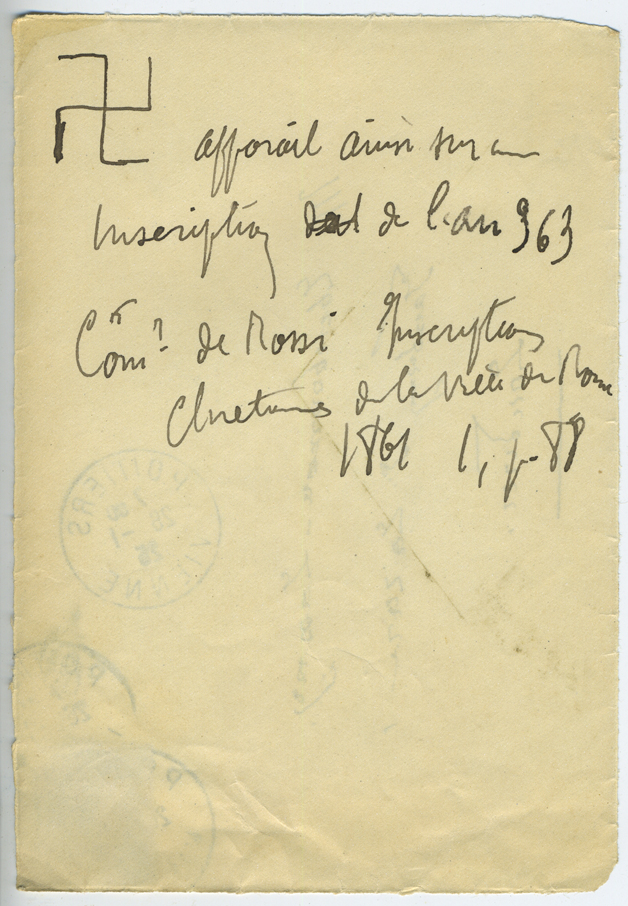 卍 apparait ainsi sur une
Inscription de l'an 363
Com.r de Rossi Inscriptions
Chretiennes de la Ville de Rome
1861 1, p. 88
POITIERS
VIENNE